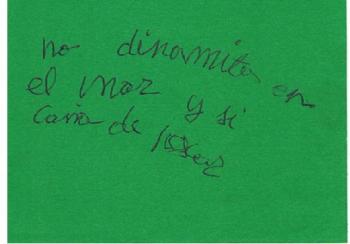 no dinamita en
el mar y si
caña de pescar